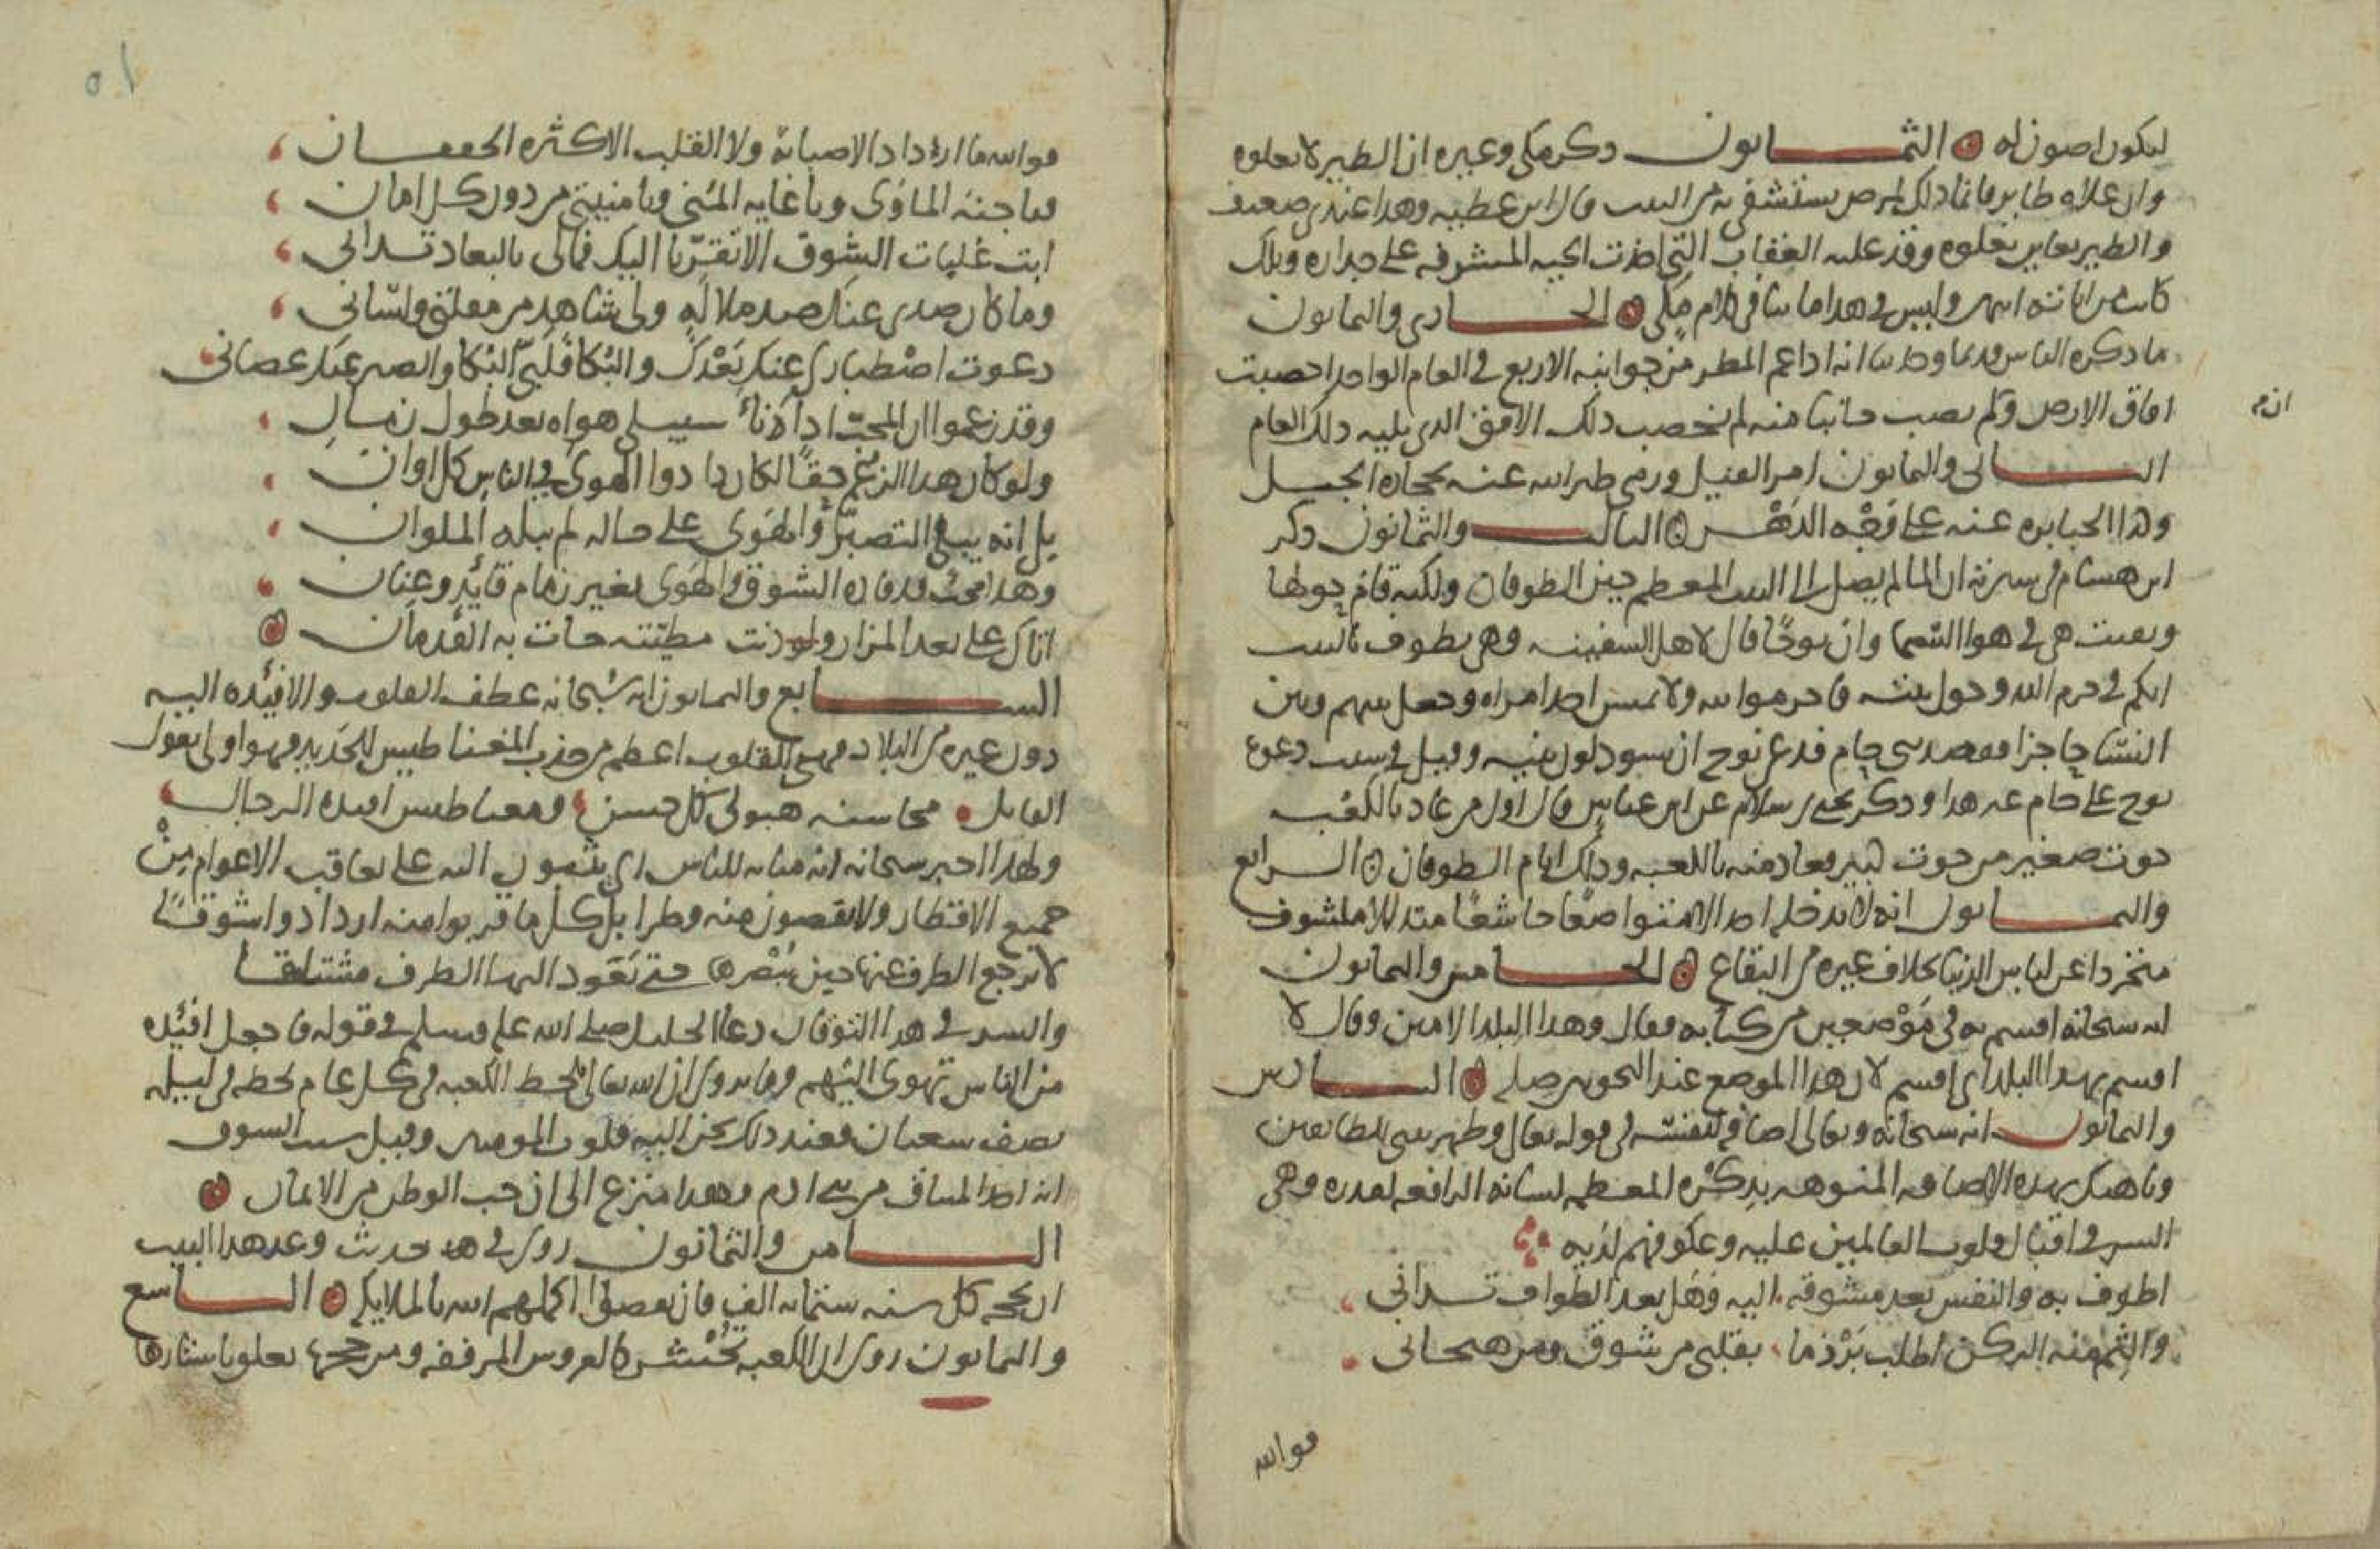 ليكون اصون له الثمانون ذكر مكي وغيره ان الطير لا يعلوه
وان علاه طاير فانما ذلك لمرض يستشفي به من البيت قال ابن عطيه وهذا عندي ضعيف
والطير يعاين يعلوه وقد علته العقاب التي اخذت الحيه المشرفه على جداره وتلك
كانت من اياته انتهى وليس في هذا ما ينافي كلام مكي الحادي والثمانون
ما ذكره الناس قديما وحديثا انه اذا عم المطر من جوانبه الاربع في العام الواحد اخصبت
افاق الارض ولم يصب جانبا منه لم يخصب ذلك الافق الذي يليه ذلك العام
ان م
الثاني والثمانون امر الفيل ورمي طير الله عنه بحجارة السجيل
الجبابره عنه على وجه الدهر الثالث والثمانون ذكر
ابن هشام في سيرته ان الما لم يصل الى البيت المعظم حين الطوفان ولكنه قام حولها
وبقيت هي في هوا السما وان نوحا قال لاهل السفينه وهي تطوف بالبيت
انكم في حرم الله وحول بيته فاحرموا لله ولا يمس احد امراه وجعل بينهم وبين
النسا حاجزا فتعدى حام فدعى نوح ان يسود لون بنيه وقيل في سبب دعوة
نوح على حام غير هذا وذكر يحيى بن سلام عن ابن عباس قال اول من عاذ بالكعبه
حوت صغير من حوت كبير فعاذ منه بالكعبه وذلك ايام الطوفان الرابع
والثمانون انه لا يدخله احد الا متواضعا خاشعا متذللا مكشوف
متجردا عن لباس الدنيا بخلاف غيره من البقاع الخامس والثمانون
انه سبحانه اقسم به في موضعين من كتابه فقال وهذا البلد الامين وقال لا
اقسم بهذا البلد اي اقسم لان هذا الموضع عند النحويين صله السادس
والثمانون انه سبحانه وتعالى اضافه لنفسه في قوله تعالى وطهر بيتي للطايفين
وناهيك بهذه الاضافه المنوهه بذكره المعظمه لشانه الرافعه لقدره وهي
السر في اقبال قلوب العالمين عليه وعكوفهم لديه
اطوف به والنفس بعد مشوقه اليه وهل بعد الطواف تداني
والثم منه الركن اطلب برد ما بقلبي من شوق ومن هيجاني
فوالله
فوالله ما ازداد الا صبابة ولا القلب الا كثره الخفقان
فيا جنة الماوى ويا غايه المنى ويا منيتي من دون كل امان
ابت غلبات الشوق الا تقربا اليك فما لي بالبعاد تداني
وما كان صدي عنك صد ملاله ولي شاهد من مقلتي ولساني
دعوت اصطباري عنك بعدك والبكا فلبى البكا والصبر عنك عصاني
وقد زعموا ان المحب اذا نأى سيبلى هواه بعد طول زمان
ولو كان هذا الزعم حقا لكان ذا دوا الهوى في الناس كل اوان
بل انه يبلى التصبر والهوى على حاله لم يبله الملوان
وهذا محب قد قاده الشوق والهوى بغير زمام قايد وعنان
اتاك على بعد المزار ولو ونت مطيته جات به القدمان
السابع والثمانون انه سبحانه عطف القلوب والافئده اليه
دون غيره من البلاد فهو للقلوب اعظم من جذب المغناطيس للحديد فهو اولى بقول
القايل محاسنه هيولى كل حسن ومغناطيس افيده الرجال
ولهذا اخبر سبحانه انه مثابه للناس اي يثوبون اليه على تعاقب الاعوام من
جميع الاقطار ولا يقضون منه وطرا بل كلما قربوا منه ازدادوا شوقا
لا يرجع الطرف عنها حين يبصرها حتى يعود اليها الطرف مشتاقا
والسر في هذا التوقان دعا الخليل صلى الله عليه وسلم في قوله فاجعل افئده
من الناس تهوي اليهم وما يروى ان الله تعالى يلحظ الكعبه في كل عام لحظه في ليله
نصف شعبان فعند ذلك يحن اليه قلوب المومنين وقيل سبب الشوق
انه اخذ الميثاق من بني ادم وهذا منزع الى ان حب الوطن من الايمان
الثامن والثمانون روي في حديث وعد هذا البيت
ان يحجه كل سنه ستمائه الف فان نقصوا اكملهم الله بالملايكه التاسع
والثمانون روي ان الكعبه تحشر كالعروس المزففه ومن حجها تعلق باستارها